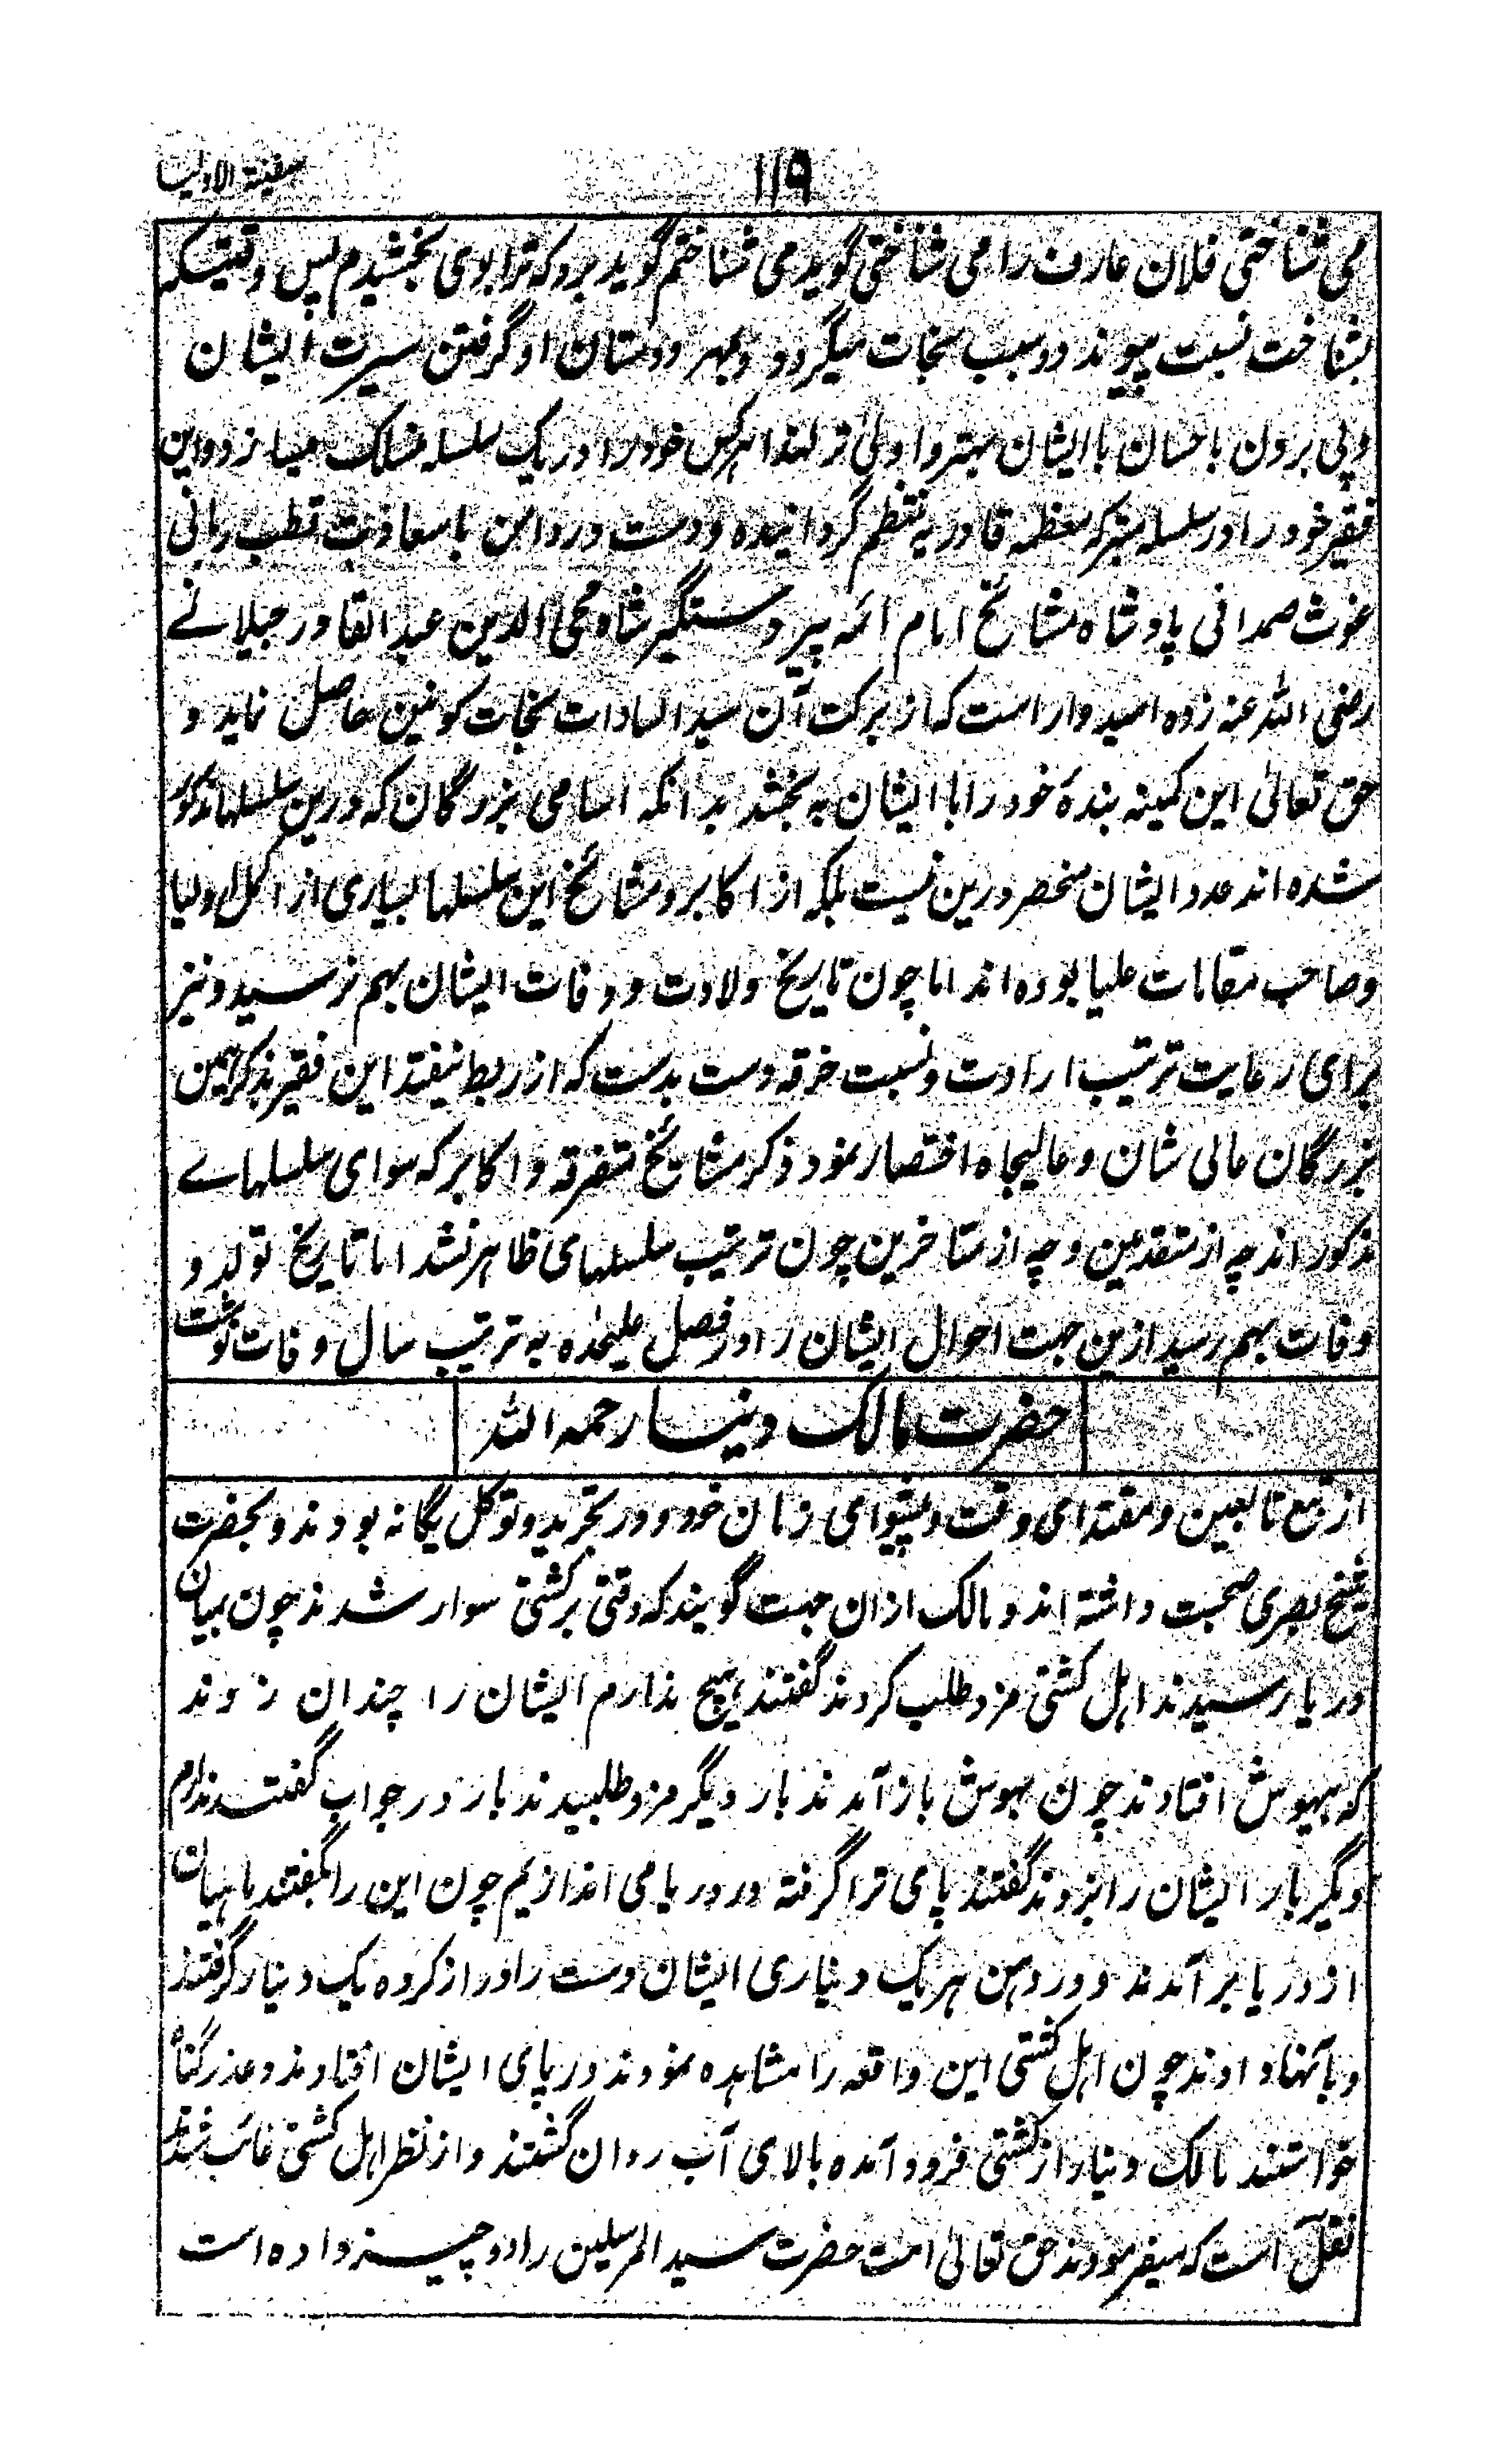 سفینة الاولیا
۱۱۹
می شناختی فلان عارف را می شناختی گوید می شناختم گوید برو که ترا بوی بخشیدم پس وقتیکه
بشناخت نسبت پیوندد و سبب نجات میگردد و بمهر دوستان او گرفتن سیرت ایشان
و پی بردن باحسان با ایشان بهتر و اولیٰ تر لهذا هر کس خود را در یک سلسله منسلک میسازد و این
فقیر خود را در سلسله متبرکه معظمه قادریه منتظم گردانیده و دست در دامن با سعادت قطب ربانی
غوث صمدانی پادشاه مشائخ امام ائمه پیر دستگیر شاه محی الدین عبد القادر جیلانے
رضی الله عنه زده امیدوار است که از برکت آن سید السادات نجات کونین حاصل نماید و
حق تعالیٰ این کمینه بندهٔ خود را با ایشان به بخشد بدانکه اسامی بزرگان که درین سلسلها مذکور
شده اند عدد ایشان منحصر درین نیست بلکه از اکابر و مشائخ این سلسلها بسیاری از اکمل اولیا
و صاحب مقامات علیا بوده اند اما چون تاریخ ولادت و وفات ایشان بهم نرسید و نیز
برای رعایت ترتیب ارادت و نسبت خرقه دست بدست که از ربط نیفتد این فقیر بذکر همین
بزرگان عالی شان و عالیجاه اختصار نمود ذکر مشایخ متفرقه و اکابر که سوای سلسلهاے
مذکور اند چه از متقدمین و چه از متاخرین چون ترتیب سلسلهای ظاهر نشد اما تاریخ تولد و
وفات بهم رسید ازین جهت احوال ایشان را در فصل علیحٰده به ترتیب سال وفات نوشت
حضرت مالک دینار رحمه الله
از تبع تابعین و مقتدای وقت و پیشوای زمان خود و در تجرید و توکل یگانه بودند و بحضرت
شیخ بصری صحبت داشته اند و مالک ازان جهت گویند که وقتی بر کشتی سوار شدند چون بمیان
دریا رسیدند اهل کشتی مزد طلب کردند گفتند هیچ ندارم ایشان را چندان زدند
که بیهوش افتادند چون بهوش باز آمدند بار دیگر مزد طلبیدند باز در جواب گفتند ندارم
دیگر بار ایشان را بزدند گفتند پای ترا گرفته در دریا می اندازیم چون این را بگفتند ماهیان
از دریا بر آمدند و در دهن هر یک دیناری ایشان دست را دراز کرده یک دینار گرفتند
و بآنها دادند چون اهل کشتی این واقعه را مشاهده نمودند در پای ایشان افتادند و عذر گناه
خواستند مالک دینار از کشتی فرود آمده بالای آب روان گشتند و از نظر اهل کشتی غائب شدند
نقل است که میفرمودند حق تعالیٰ امت حضرت سید المرسلین را دو چیز داده است